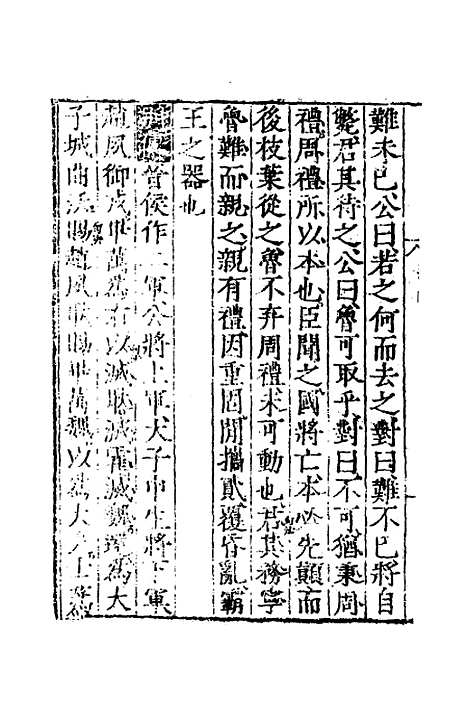 難未已公曰若之何而去之對曰難不已將自
斃君其待之公曰魯可取乎對曰不可猶秉周
禮周禮所以本也臣聞之國將亡本必先顛而
後枝葉從之魯不弃周禮未可動也君其務寧
魯難而親之親有禮因重固閒攜貳覆昏亂霸
王之器也
晉侯作二軍公將上軍大子申生將下軍
趙夙御戎畢萬為右以滅耿滅霍滅魏還為大
子城曲沃賜趙夙耿賜畢萬魏以為大夫士蒍